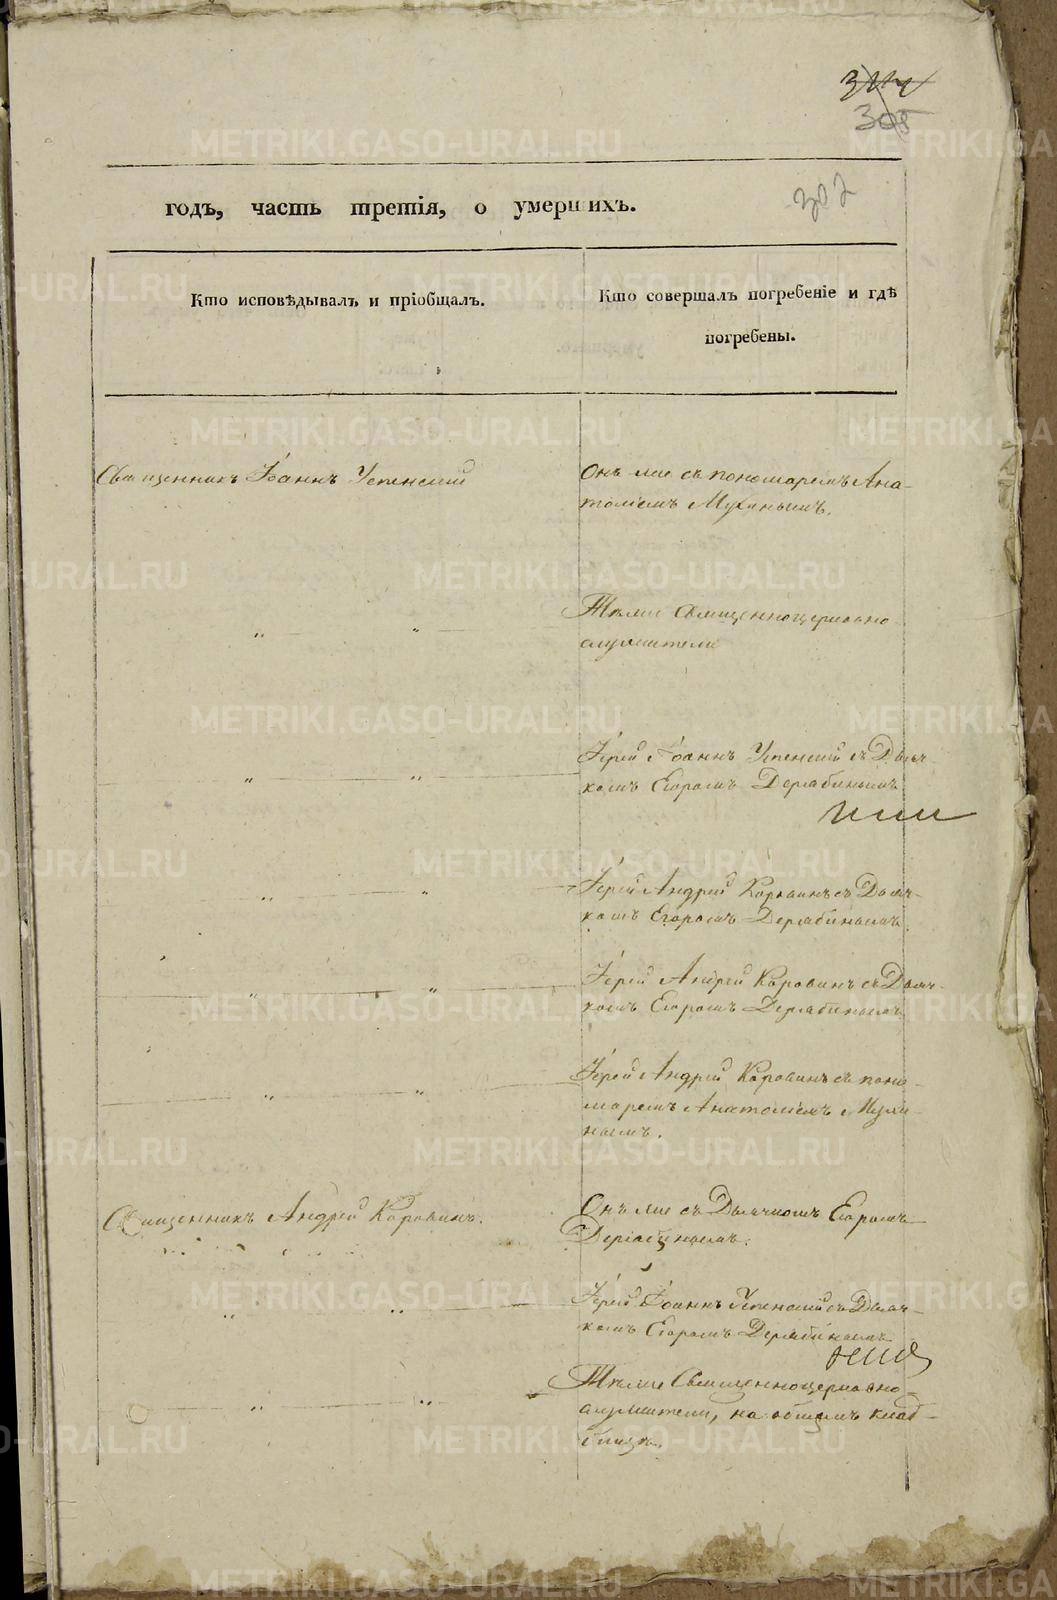 308
302
годъ, часть третія, о умершихъ.
Кто исповѣдывалъ и пріобщалъ.
Кто совершалъ погребеніе и гдѣ
погребены.
Священникъ Іоаннъ Успенскій
Онъ же съ пономаремъ Ана-
толіемъ Мухинымъ.
„ „
Тѣже Священноцерковно
служители
„ „
Іерей Іоаннъ Успенскій съ Дьяч-
комъ Егоромъ Дерябинымъ
„ „
Іерей Андрей Коровинъ съ Дьяч-
комъ Егоромъ Дерябинымъ.
„ „
Іерей Андрей Коровинъ съ Дьяч-
комъ Егоромъ Дерябинымъ.
„ „
Іерей Андрей Коровинъ съ поно-
маремъ Анатоліемъ Мухи-
нымъ.
Священникъ Андрей Коровинъ.
Онъ же съ Дьячкомъ Егоромъ
Дерябинымъ.
„ „
Іерей Іоаннъ Успенскій съ Дьяч-
комъ Егоромъ Дерябинымъ
„ „
Тѣже Священноцерковно-
служители, на общемъ клад-
бищѣ.
METRIKI.GASO-URAL.RU